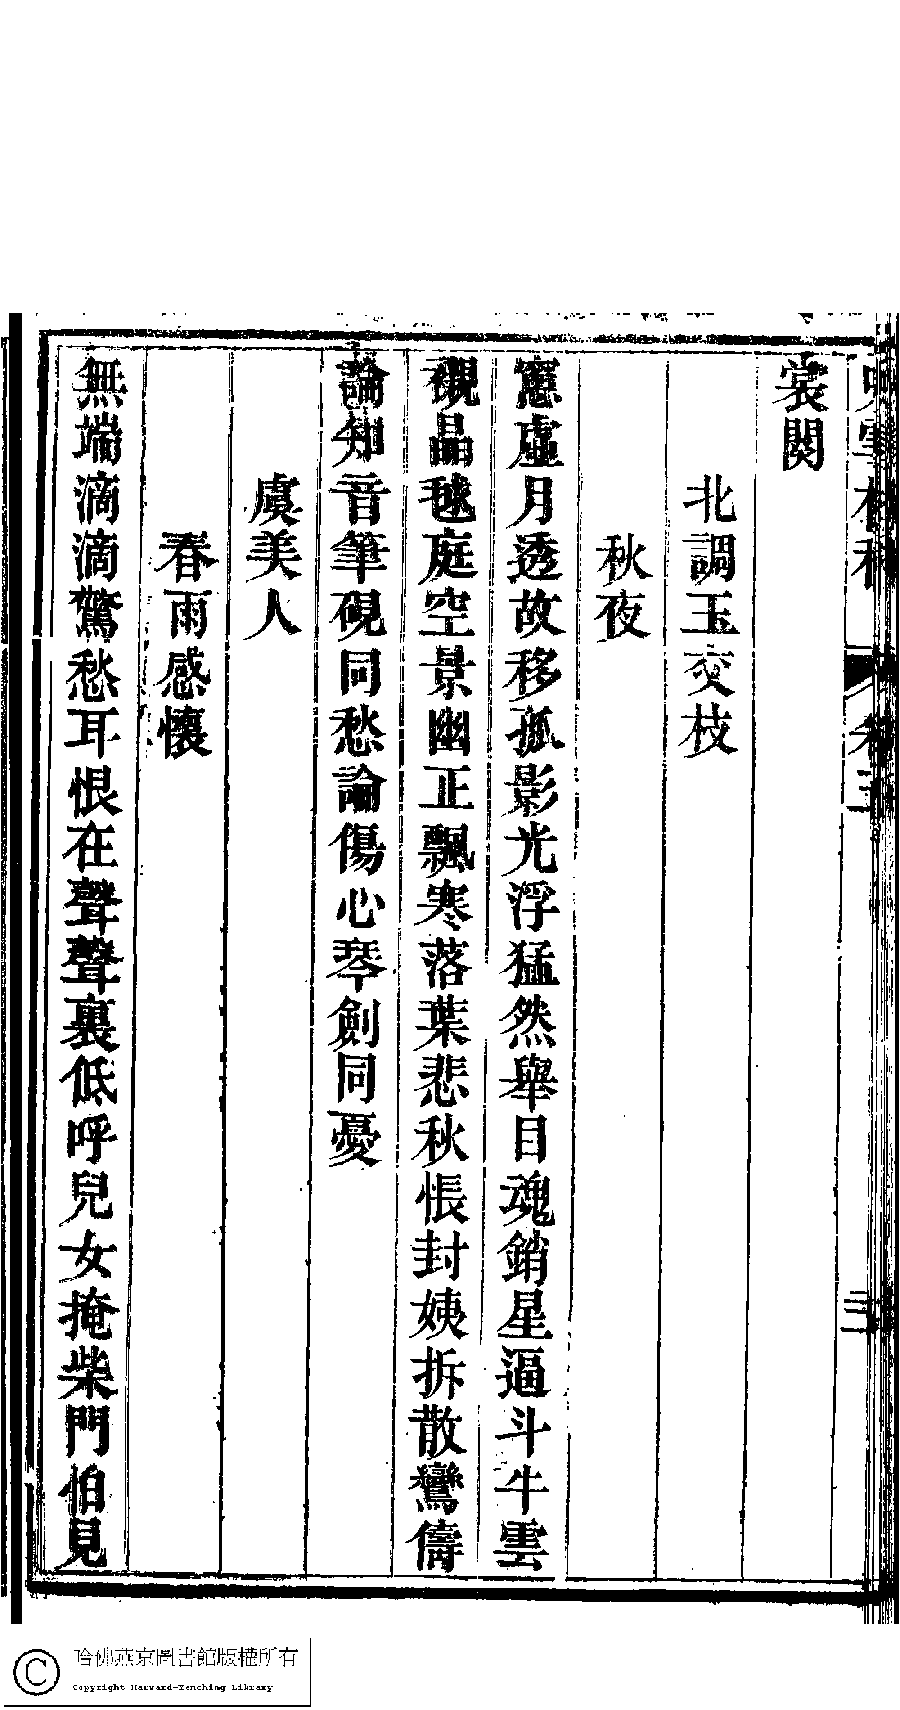 裳闋
北調玉交枝
秋夜
窻虛月透故移孤影光浮猛然舉目魂銷星逼斗牛雲
襯晶毬庭空景幽正飄寒落葉悲秋悵封姨拆散鸞儔
論知音筆硯同愁論傷心琴劍同憂
虞美人
春雨感懷
無端滴滴驚愁耳恨在聲聲裏低呼兒女掩柴門怕見
哈佛燕京圖書館版權所有
Copyright Harvard-Yenching Library